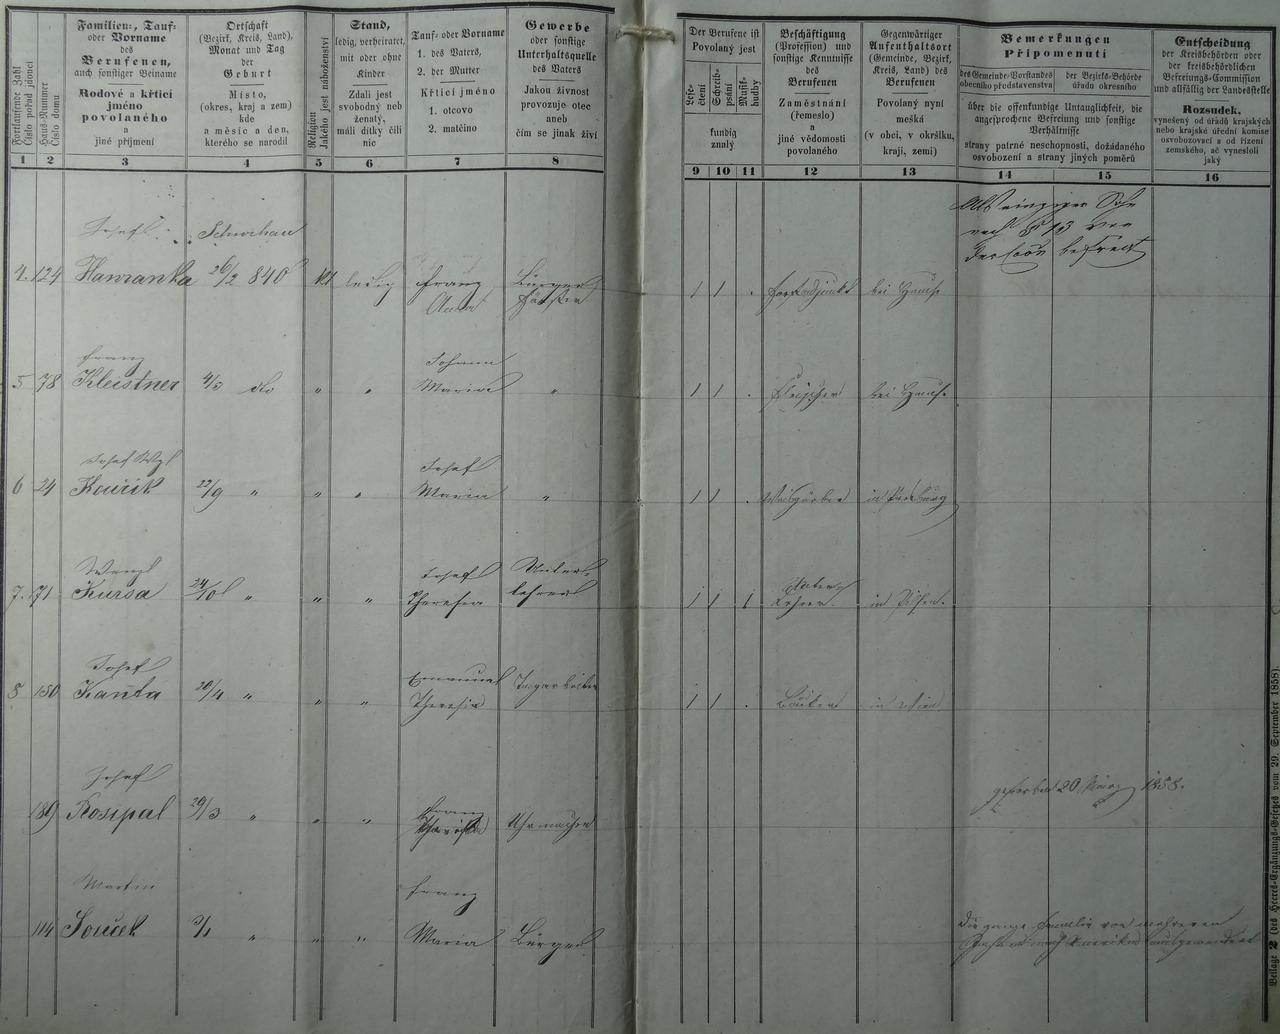 Fortlaufende Zahl
Číslo pořád jdoucí
Haus-Nummer
Číslo domu
Familien-, Tauf-
oder Vorname
des
Berufenen,
auch sonstiger Beiname
Rodové a křticí
jméno
povolaného
a
jiné příjmení
Ortschaft
(Bezirk, Kreis, Land),
Monat und Tag
der
Geburt
Místo,
(okres, kraj a zem)
kde
a měsíc a den,
kterého se narodil
Religion
Jakého jest náboženství
Stand,
ledig, verheiratet,
mit oder ohne
Kinder
Zdali jest
svobodný neb
ženatý,
máli dítky čili
nic
Tauf- oder Vorname
1. des Vaters,
2. der Mutter
Křticí jméno
1. otcovo
2. matčino
Gewerbe
oder sonstige
Unterhaltsquelle
des Vaters
Jakou živnost
provozuje otec
aneb
čím se jinak živí
Der Berufene ist
Povolaný jest
Lese-
čtení
Schreib-
psání
Musik-
hudby
kundig
znalý
Beschäftigung
(Profession) und
sonstige Kenntnisse
des
Berufenen
Zaměstnání
(řemeslo)
a
jiné vědomosti
povolaného
Gegenwärtiger
Aufenthaltsort
(Gemeinde, Bezirk,
Kreis, Land) des
Berufenen
Povolaný nyní
mešká
(v obci, v okršku,
kraji, zemi)
Bemerkungen
Připomenutí
des Gemeinde-Vorstandes
obecního představenstva
der Bezirks-Behörde
úřadu okresního
über die offenkundige Untauglichkeit, die
angesprochene Befreiung und sonstige
Verhältnisse
strany patrné neschopnosti, dožádaného
osvobození a strany jiných poměrů
Entscheidung
der Kreisbehörden oder
der kreisbehördlichen
Befreiungs-Commission
und allfällig der Landesstelle
Rozsudek,
vynešený od úřadů krajských
nebo krajské úřední komise
osvobozovací a od řízení
zemského, ač vynesloli
jaký
1 2 3 4 5 6 7 8 9 10 11 12 13 14 15 16
Als einziger Sohn
nach § 13 von
befreit
Josef
4. 124 Hawranka 26/2 840 ledig Franz Bürger
Anna Förster
1 1 . Forstadjunkt bei Hause
Franz Johann
5 78 Kleistner 4/3 dto " " Maria " 1 1 . Fleischer bei Hause
Josef Wzl Josef
6 24 Kouřik 22/9 " " " Maria " 1 1 . Weisgärber in
Wenzl Josef Unter-
7. 71 Kursa 24/10 " " " Theresia lehrer 1 1 1 Unter
Lehrer in Pilsen.
Josef Emanuel
8 150 Kaňta 20/4 " " " Theresia Tagarbeiter 1 1 . Bäcker in Wien
Josef gestorben 20 März 1858.
189 Rosipal 29/3 " " " Franz
Uhrmacher
Martin Franz
114 Souček 3/1 " " " Maria Bürger
die ganze Familie vor mehreren
Jahren nach Amerika ausgewandert
Beilage 2 (des Heeres-Ergänzungs-Gesetzes vom 29. September 1858).